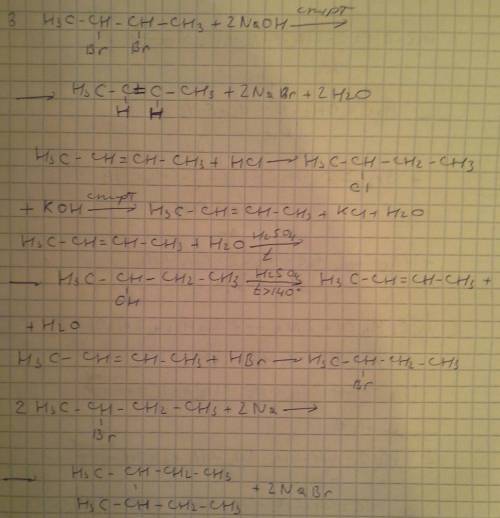 3 H3C-CH-CH-CH3 + 2NaOH спирт→
Br Br
→ H3C-C=C-CH3 + 2NaBr + 2H2O
H H
H3C-CH=CH-CH3 + HCl → H3C-CH-CH2-CH3
Cl
+ KOH спирт→ H3C-CH=CH-CH3 + KCl + H2O
H3C-CH=CH-CH3 + H2O H2SO4→
t
→ H3C-CH-CH2-CH3 H2SO4→ H3C-CH=CH-CH3 +
OH t>140°
+ H2O
H3C-CH=CH-CH3 + HBr → H3C-CH-CH2-CH3
Br
2 H3C-CH-CH2-CH3 + 2Na →
Br
→ H3C-CH-CH2-CH3
+ 2NaBr
H3C-CH-CH2-CH3